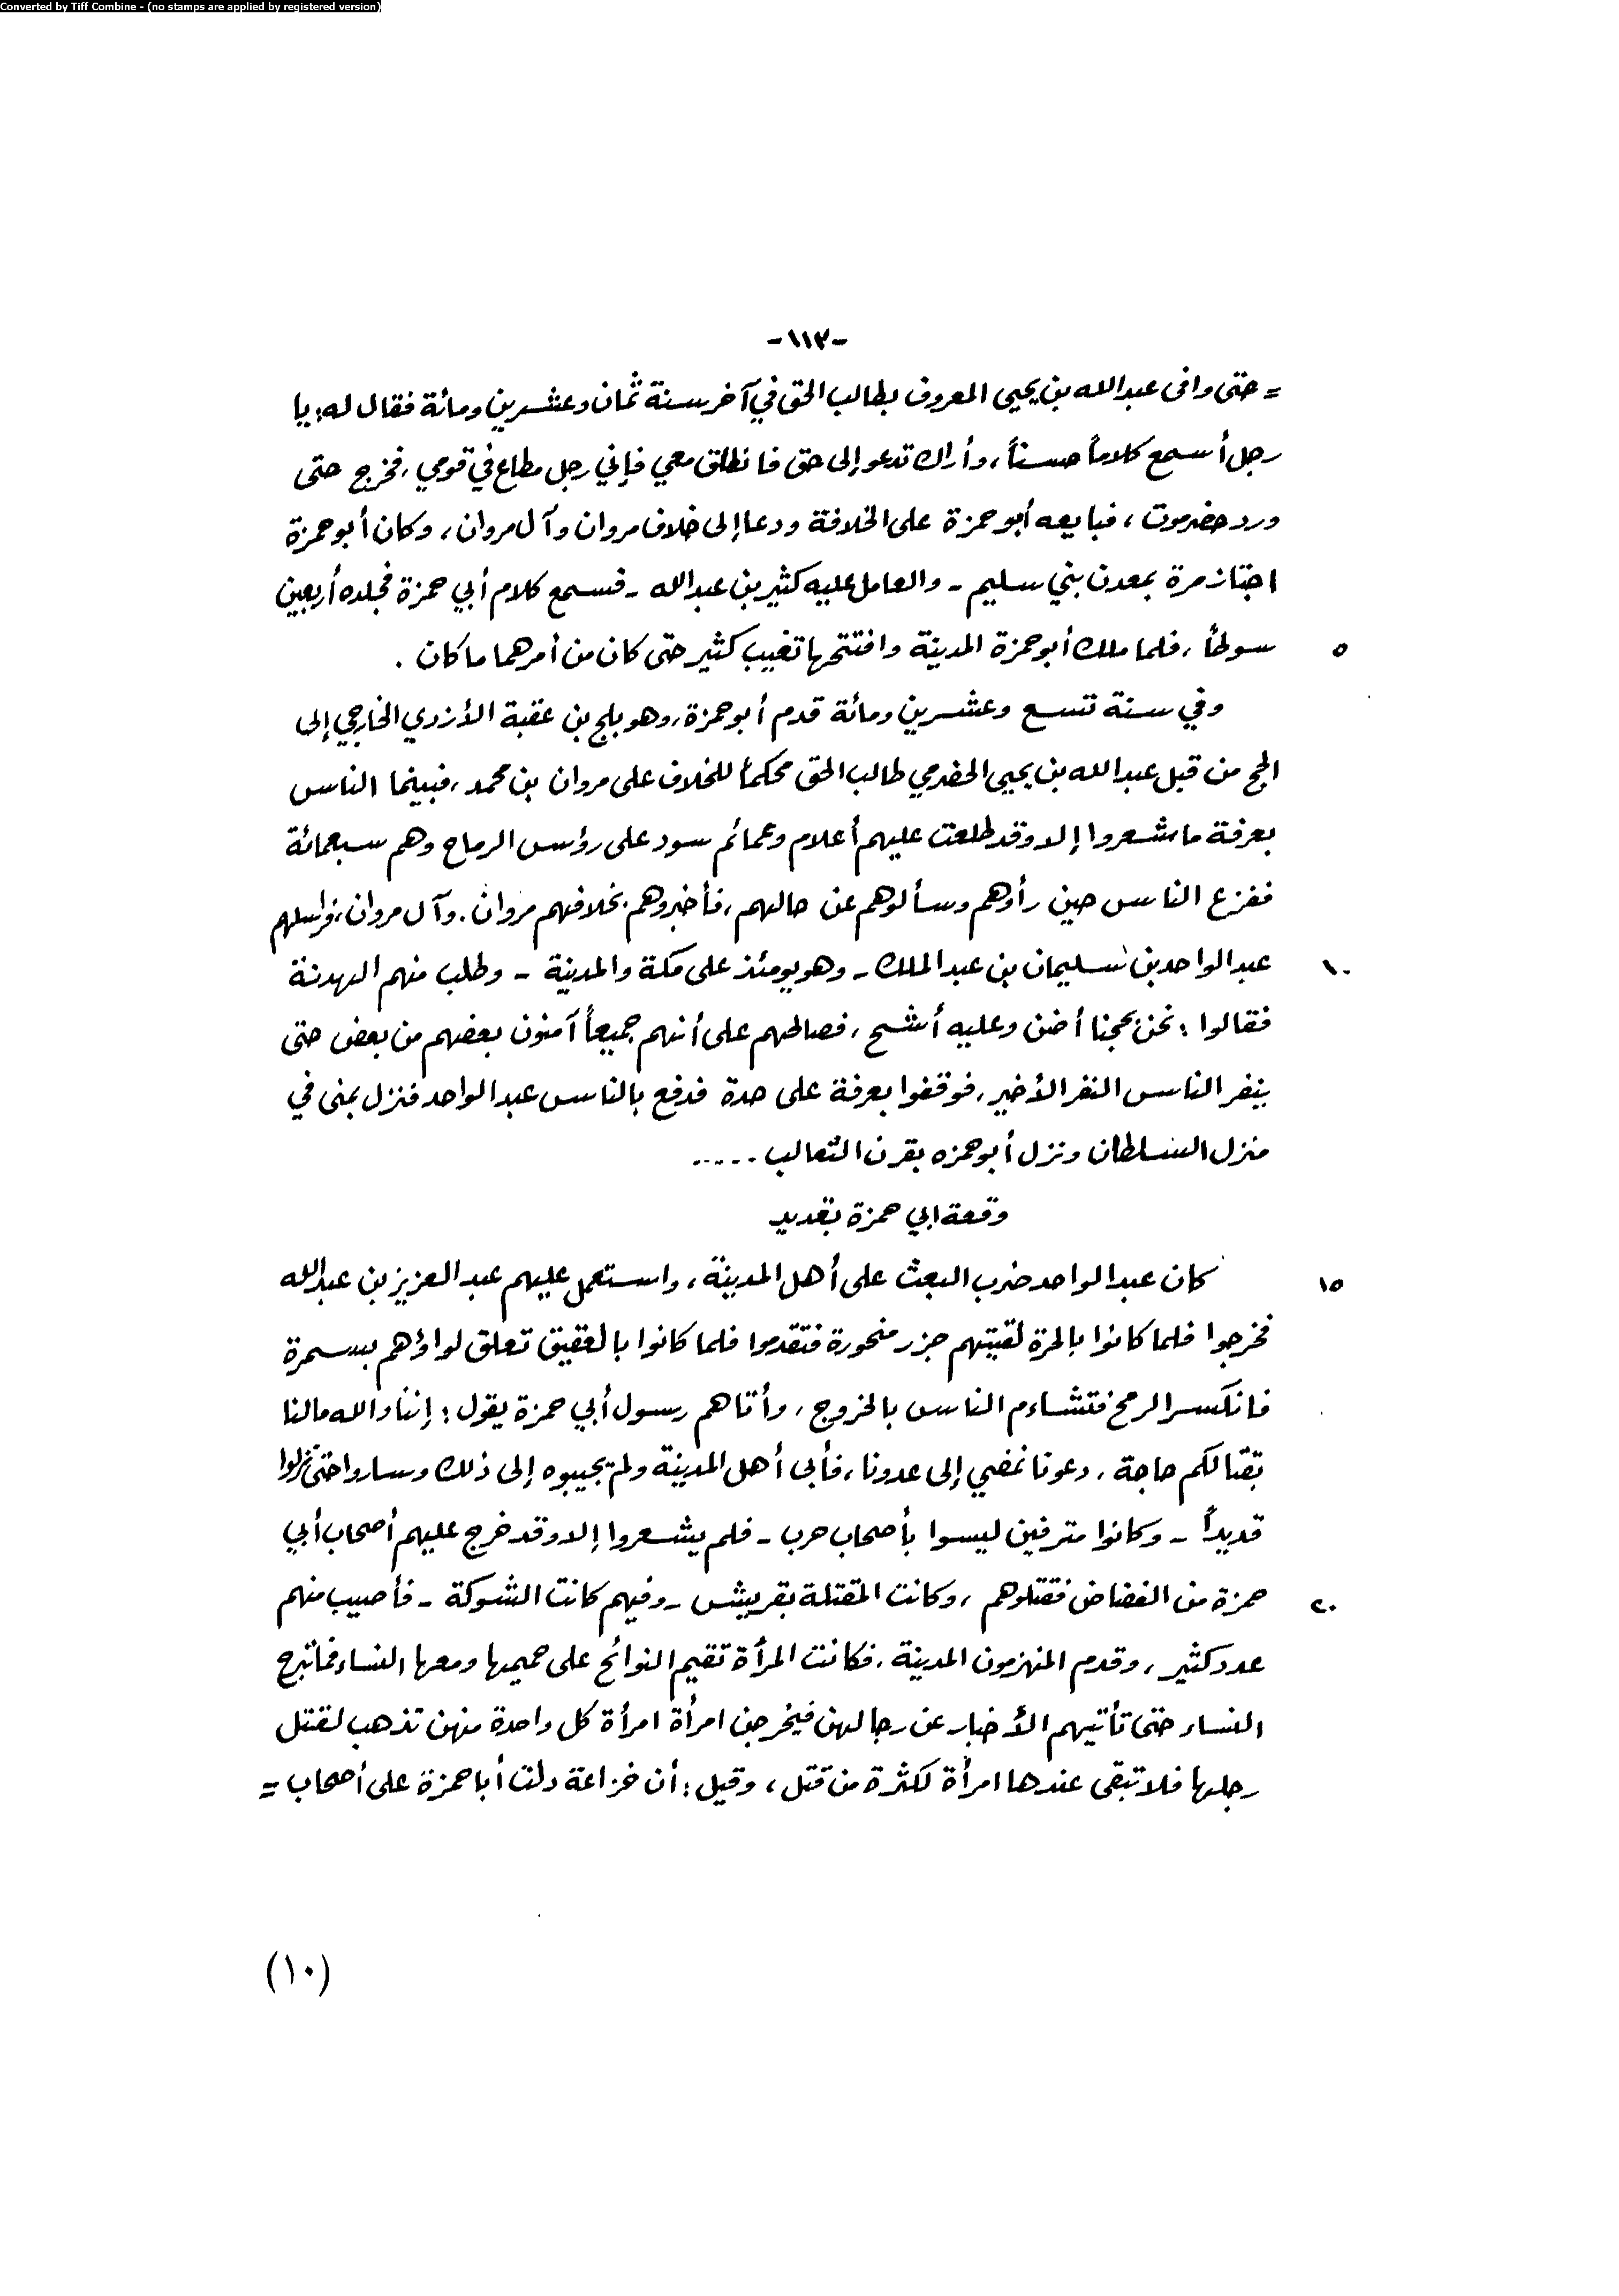 Converted by Tiff Combine - (no stamps are applied by registered version)
-١١٣-
= حتى وافى عبدالله بن يحيى المعروف بطالب الحق في آخر سنة ثمان وعشرين ومائة فقال له: يا
رجل أسمع كلاماً حسناً، وأراك تدعو إلى حق فانطلق معي فإني رجل مطاع في قومي، فخرج حتى
ورد حضرموت، فبايعه أبو حمزة على الخلافة ودعا إلى خلاف مروان وآل مروان، وكان أبو حمزة
اجتاز مرة بمعدن بني سليم - والعامل عليه كثير بن عبدالله - فسمع كلام أبي حمزة فجلده أربعين
٥ سوطاً، فلما ملك أبو حمزة المدينة وافتتحها تغيب كثير حتى كان من أمرهما ما كان .
وفي سنة تسع وعشرين ومائة قدم أبو حمزة، وهو بلج بن عقبة الأزدي الخارجي إلى
الحج من قبل عبدالله بن يحيى الحضرمي طالب الحق محكماً للخلاف على مروان بن محمد، فبينما الناس
بعرفة ما شعروا إلا وقد طلعت عليهم أعلام وعمائم سود على رؤس الرماح وهم سبعمائة
ففزع الناس حين رأوهم وسألوهم عن حالهم، فأخبروهم بخلافهم مروان. وآل مروان، فراسلهم
١٠ عبدالواحد بن سليمان بن عبدالملك - وهو يومئذ على مكة والمدينة - وطلب منهم الهدنة
فقالوا : نحن بحجنا أضن وعليه أشح، فصالحهم على أنهم جميعاً آمنون بعضهم من بعض حتى
ينفر الناس النفر الأخير، فوقفوا بعرفة على حدة فدفع بالناس عبدالواحد فنزل بمنى في
منزل السلطان ونزل أبو حمزه بقرن الثعالب .....
وقعة ابي حمزة بقديد
١٥ كان عبدالواحد ضرب البعث على أهل المدينة، واستعمل عليهم عبدالعزيز بن عبدالله
فخرجوا فلما كانوا بالحرة لقيتهم جزر منحورة فتقدموا فلما كانوا بالعقيق تعلق لواؤهم بسمرة
فانكسر الرمح فتشاءم الناس بالخروج، وأتاهم رسول أبي حمزة يقول : إننا والله مالنا
بقتالكم حاجة، دعونا نمضي إلى عدونا، فأبى أهل المدينة ولم يجيبوه إلى ذلك وساروا حتى نزلوا
قديداً - وكانوا مترفين ليسوا بأصحاب حرب - فلم يشعروا إلا وقد خرج عليهم أصحاب أبي
٢٠ حمزة من الغضاض فقتلوهم، وكانت المقتلة بقريش - وفيهم كانت الشوكة - فأصيب منهم
عدد كثير، وقدم المنهزمون المدينة، فكانت المرأة تقيم النوائح على حميمها ومعها النساء فما تبرح
النساء حتى تأتيهم الأخبار عن رجالهن فيخرجن امرأة امرأة كل واحدة منهن تذهب لقتل
رجلها فلا تبقى عندها امرأة لكثرة من قتل، وقيل : أن خزاعة دلت أبا حمزة على أصحاب =
(١٠)